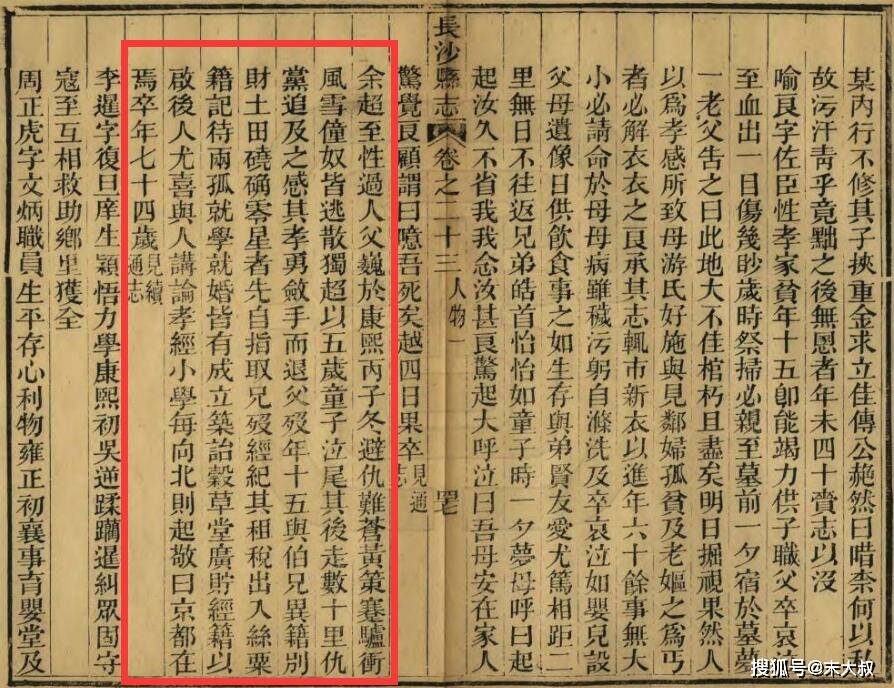 某內行不修其子挾重金求立佳傳公艴然曰唶柰何以私
故污汗靑乎竟黜之後無恩者年未四十賫志以沒
喻良字佐臣性孝家貧年十五卽能竭力供子職父卒哀泣
至血出一目傷幾眇歲時祭掃必親至墓前一夕宿於墓夢
一老父告之曰此地大不佳棺朽且盡矣明日掘視果然人
以爲孝感所致母游氏好施與見鄰婦孤貧及老嫗之爲丐
者必解衣衣之良承其志輒市新衣以進年六十餘事無大
小必請命於母母病雖穢污躬自滌洗及卒哀泣如嬰兒設
父母遺像日供飲食事之如生存與弟賢友愛尤篤相距二
里無日不往返兄弟皓首怡怡如童子時一夕夢母呼曰起
起汝久不省我我念汝甚良驚起大呼泣曰吾母安在家人
長沙縣志 卷之二十三 人物一
驚覺良顧謂曰噫吾死矣越四日果卒見通志
余超至性過人父巍於康熙丙子冬避仇難蒼黃策蹇驢衝
風雪僮奴皆逃散獨超以五歲童子泣尾其後走數十里仇
黨追及之感其孝勇斂手而退父歿年十五與伯兄異籍別
財土田磽确零星者先自指取兄歿經紀其租稅出入絲粟
籍記待兩孤就學就婚皆有成立築詒穀草堂廣貯經籍以
啟後人尤喜與人講論孝經小學每向北則起敬曰京都在
焉卒年七十四歲見續通志
李暹字復旦庠生穎悟力學康熙初吳逆蹂躪暹糾眾固守
寇至互相救助鄉里獲全
周正虎字文炳職員生平存心利物雍正初襄事育嬰堂及
搜狐号@宋大叔